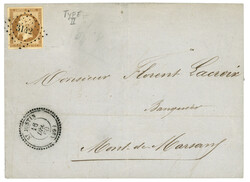 TYPE
II
Monsieur Florent Lacroix
Banquier
Mont de Marsan